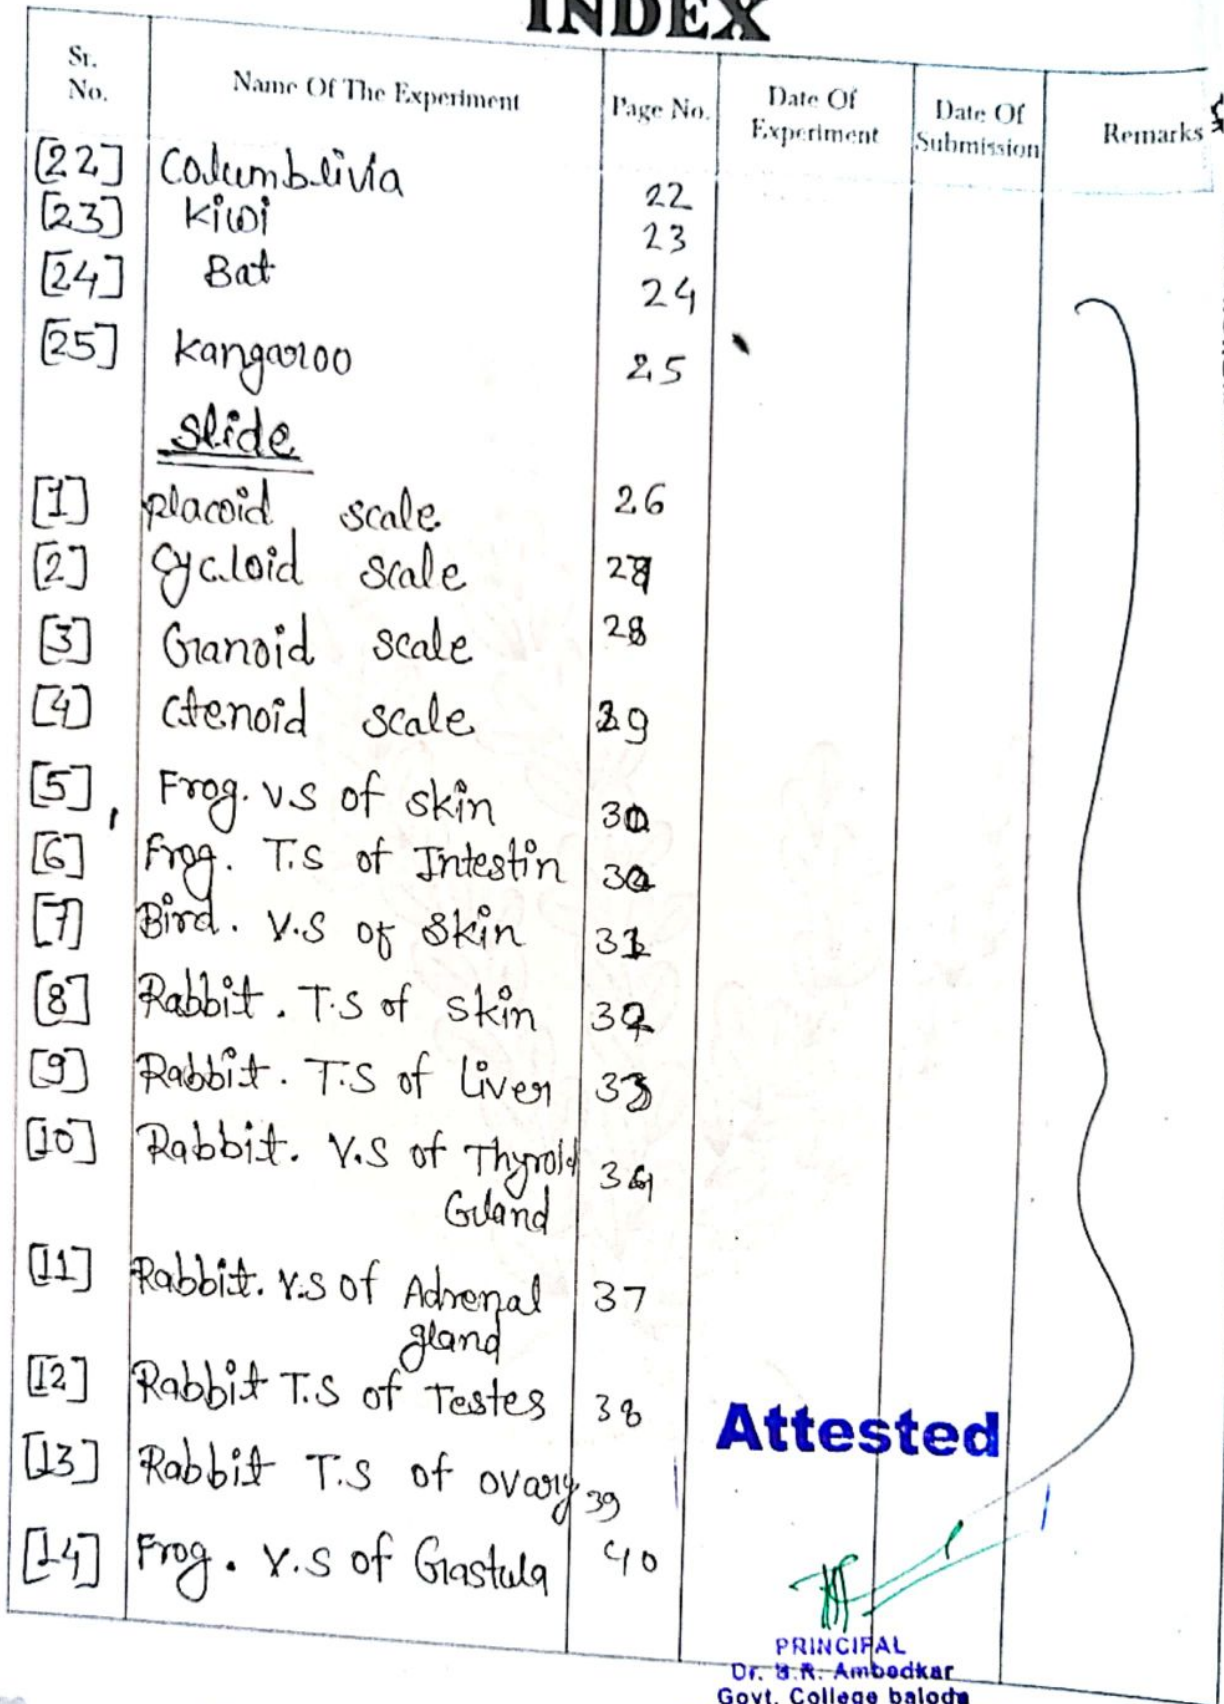 INDEX
Sr. No. Name Of The Experiment Page No. Date Of Experiment Date Of Submission Remarks
[22] Columblivia 22
[23] Kiwi 23
[24] Bat 24
[25] Kangaroo 25
Slide
[1] placoid scale 26
[2] Cycloid scale 27
[3] Ganoid scale 28
[4] Ctenoid scale 29
[5] Frog. V.S of skin 30
[6] Frog. T.S of Intestin 30
[7] Bird. V.S of Skin 31
[8] Rabbit. T.S of skin 32
[9] Rabbit. T.S of Liver 33
[10] Rabbit. V.S of Thyroid 34
Gland
[11] Rabbit. V.S of Adrenal 37
gland
[12] Rabbit T.S of Testes 38
[13] Rabbit T.S of ovary 39
[14] Frog. V.S of Gastula 40
Attested
PRINCIPAL
Dr. B.R. Ambedkar
Govt. College baloda